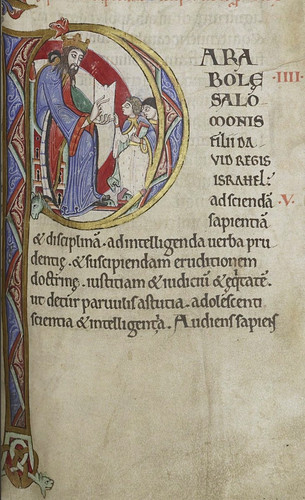 PARA
BOLĘ
SALO
MONIS
FILII DA
VID REGIS
ISRAHEL:
ad sciendā
sapientiā
& disciplinā. ad intelligenda uerba pru
dentię. & suscipiendam eruditionem
doctrinę. iustitiam & iudiciū & ęq̇tatē.
ut detur paruulis astutia. adolescenti
scientia & intelligentia. Audiens sapiens
.IIII.
.V.